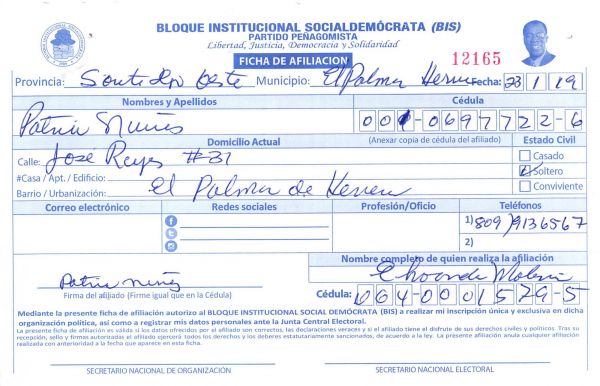 BLOQUE INSTITUCIONAL SOCIALDEMÓCRATA (BIS)
PARTIDO PEÑAGOMISTA
Libertad, Justicia, Democracia y Solidaridad
FICHA DE AFILIACION
12165
Provincia: Santo Dgo Oeste Municipio: El Palmar Herrera Fecha: 23/1/19
Nombres y Apellidos Cédula
Patria Nuñes 001-0697722-6
Domicilio Actual (Anexar copia de cédula del afiliado) Estado Civil
Calle: Jose Reyes #31 Casado
#Casa / Apt. / Edificio: Soltero
Barrio / Urbanización: El Palmar de Herrera Conviviente
Correo electrónico Redes sociales Profesión/Oficio Teléfonos
1) 809) 9136567
2)
Nombre completo de quien realiza la afiliación
Patria nuñes
Firma del afiliado (Firme igual que en la Cédula) Cédula: 064-0001579-5
Mediante la presente ficha de afiliación autorizo al BLOQUE INSTITUCIONAL SOCIAL DEMÓCRATA (BIS) a realizar mi inscripción única y exclusiva en dicha
organización política, así como a registrar mis datos personales ante la Junta Central Electoral.
La presente afiliación es válida si los datos ofrecidos por el afiliado son correctos, las declaraciones veraces y si el afiliado tiene el disfrute de sus derechos civiles y políticos. Tras su
recepción, sello y firmas autorizadas el afiliado ejercerá todos los derechos y los deberes estatutariamente sancionados, de acuerdo a la ley. La presente afiliación anula cualquier afiliación
realizada con anterioridad a la fecha que aparece en esta ficha.
SECRETARIO NACIONAL DE ORGANIZACIÓN SECRETARIO NACIONAL ELECTORAL